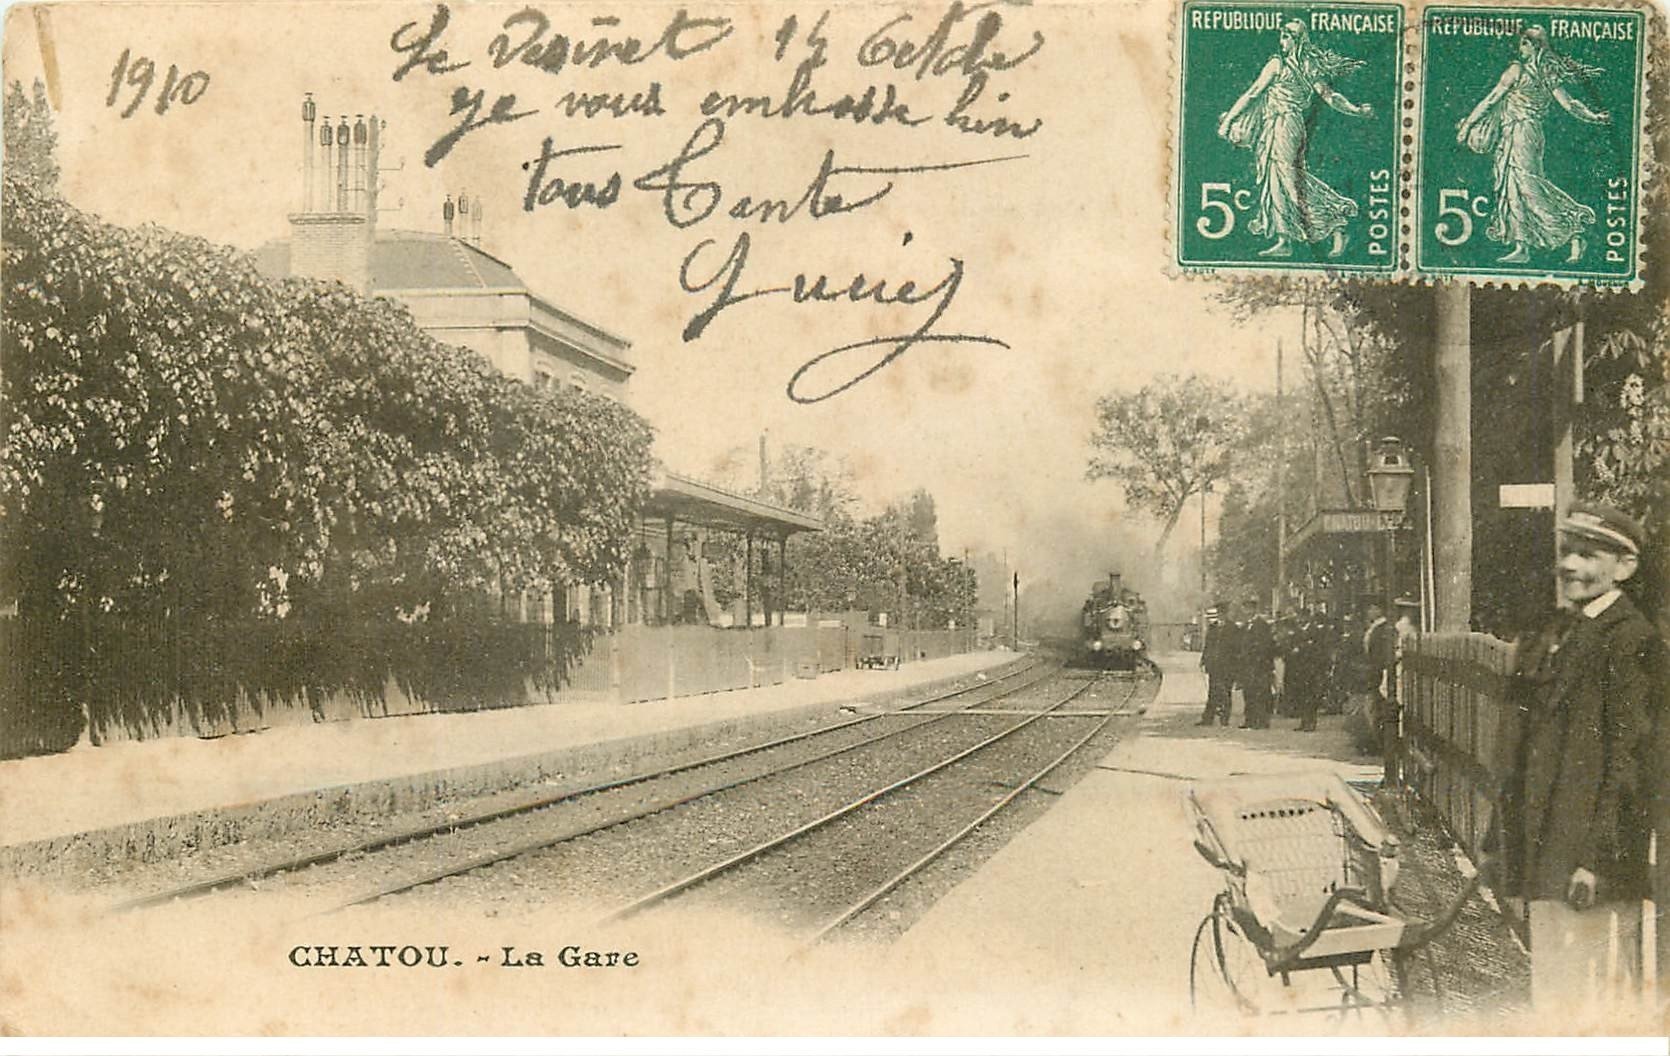 REPUBLIQUE FRANÇAISE
5c POSTES
REPUBLIQUE FRANÇAISE
5c POSTES
1910
Le Vesinet 14 Octobre
Je vous embrasse bien
tous Tante
Lucie
CHATOU
CHATOU. - La Gare